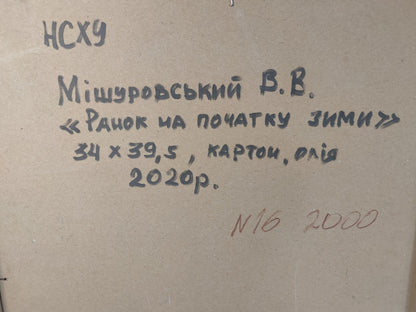 НСХУ
Мішуровський В.В.
«Ранок на початку зими»
34 х 39,5, картон, олія
2020р.
N16 2000